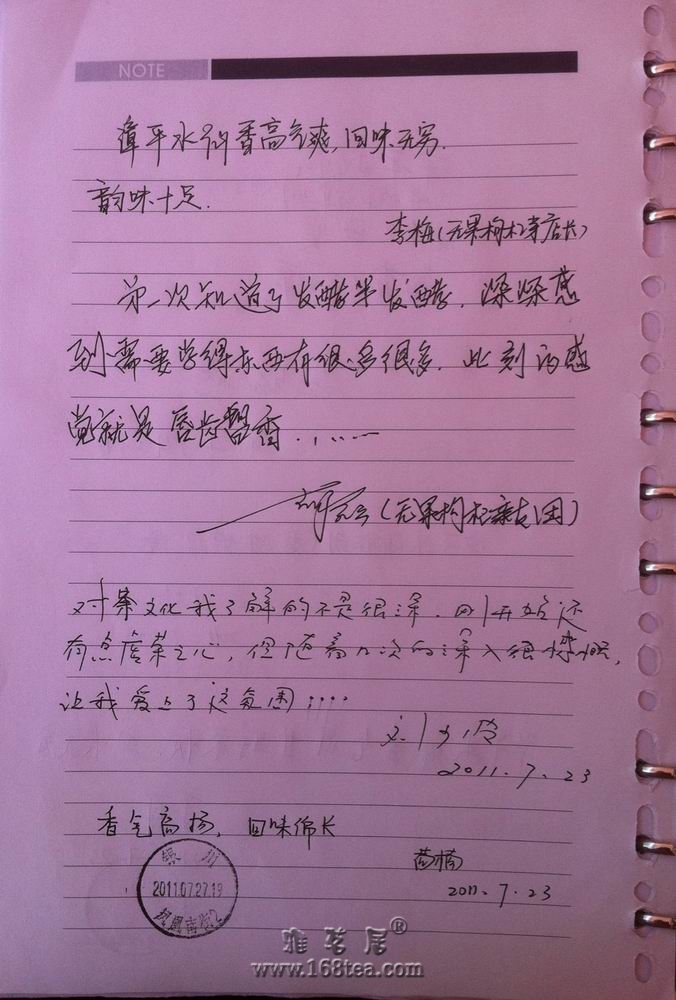 NOTE
漳平水仙香高气爽,回味无穷.
韵味十足.
李梅(无果枸杞寺店长)
第一次知道了发酵半发酵,深深感
到需要学得东西有很多很多.此刻的感
觉就是唇齿留香......
(无果枸杞亲友团)
对茶文化我了解的不是很深.刚开始还
有点虚荣之心,但随着几次的深入很
让我爱上了这氛围....
2011.7.23
香气高扬,回味绵长
苗楠
2011.7.23
银川
2011.07.27.19
凤凰南街
雅茗居®
www.168tea.com